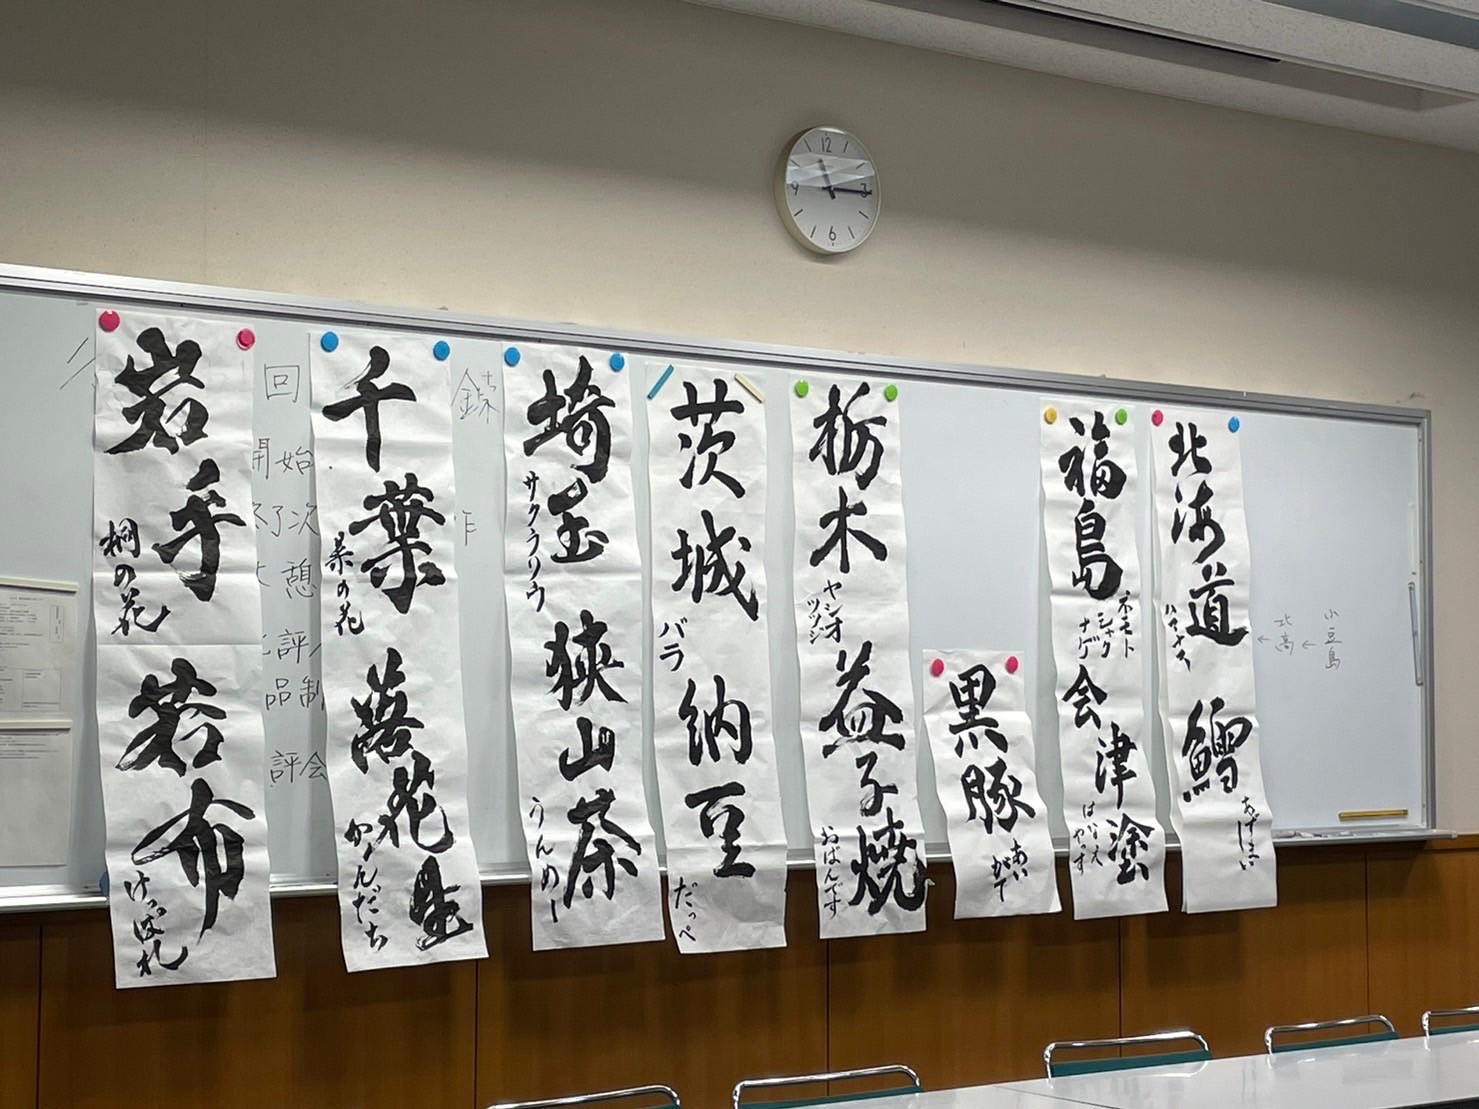 北海道
ハマナス
鱈
あずましい
福島
ネモト
シャク
ナゲ
会津塗
はなえ
やっす
黒豚
あい
がて
栃木
ヤシオ
ツツジ
益子焼
おばんです
茨城
バラ
納豆
だっぺ
埼玉
サクラソウ
狭山茶
うんめー
千葉
菜の花
落花生
岩手
桐の花
若布
けっぱれ
小豆島
北高
回
録
開始
終了次
憩
評
品制
評会
作
12
3
6
9